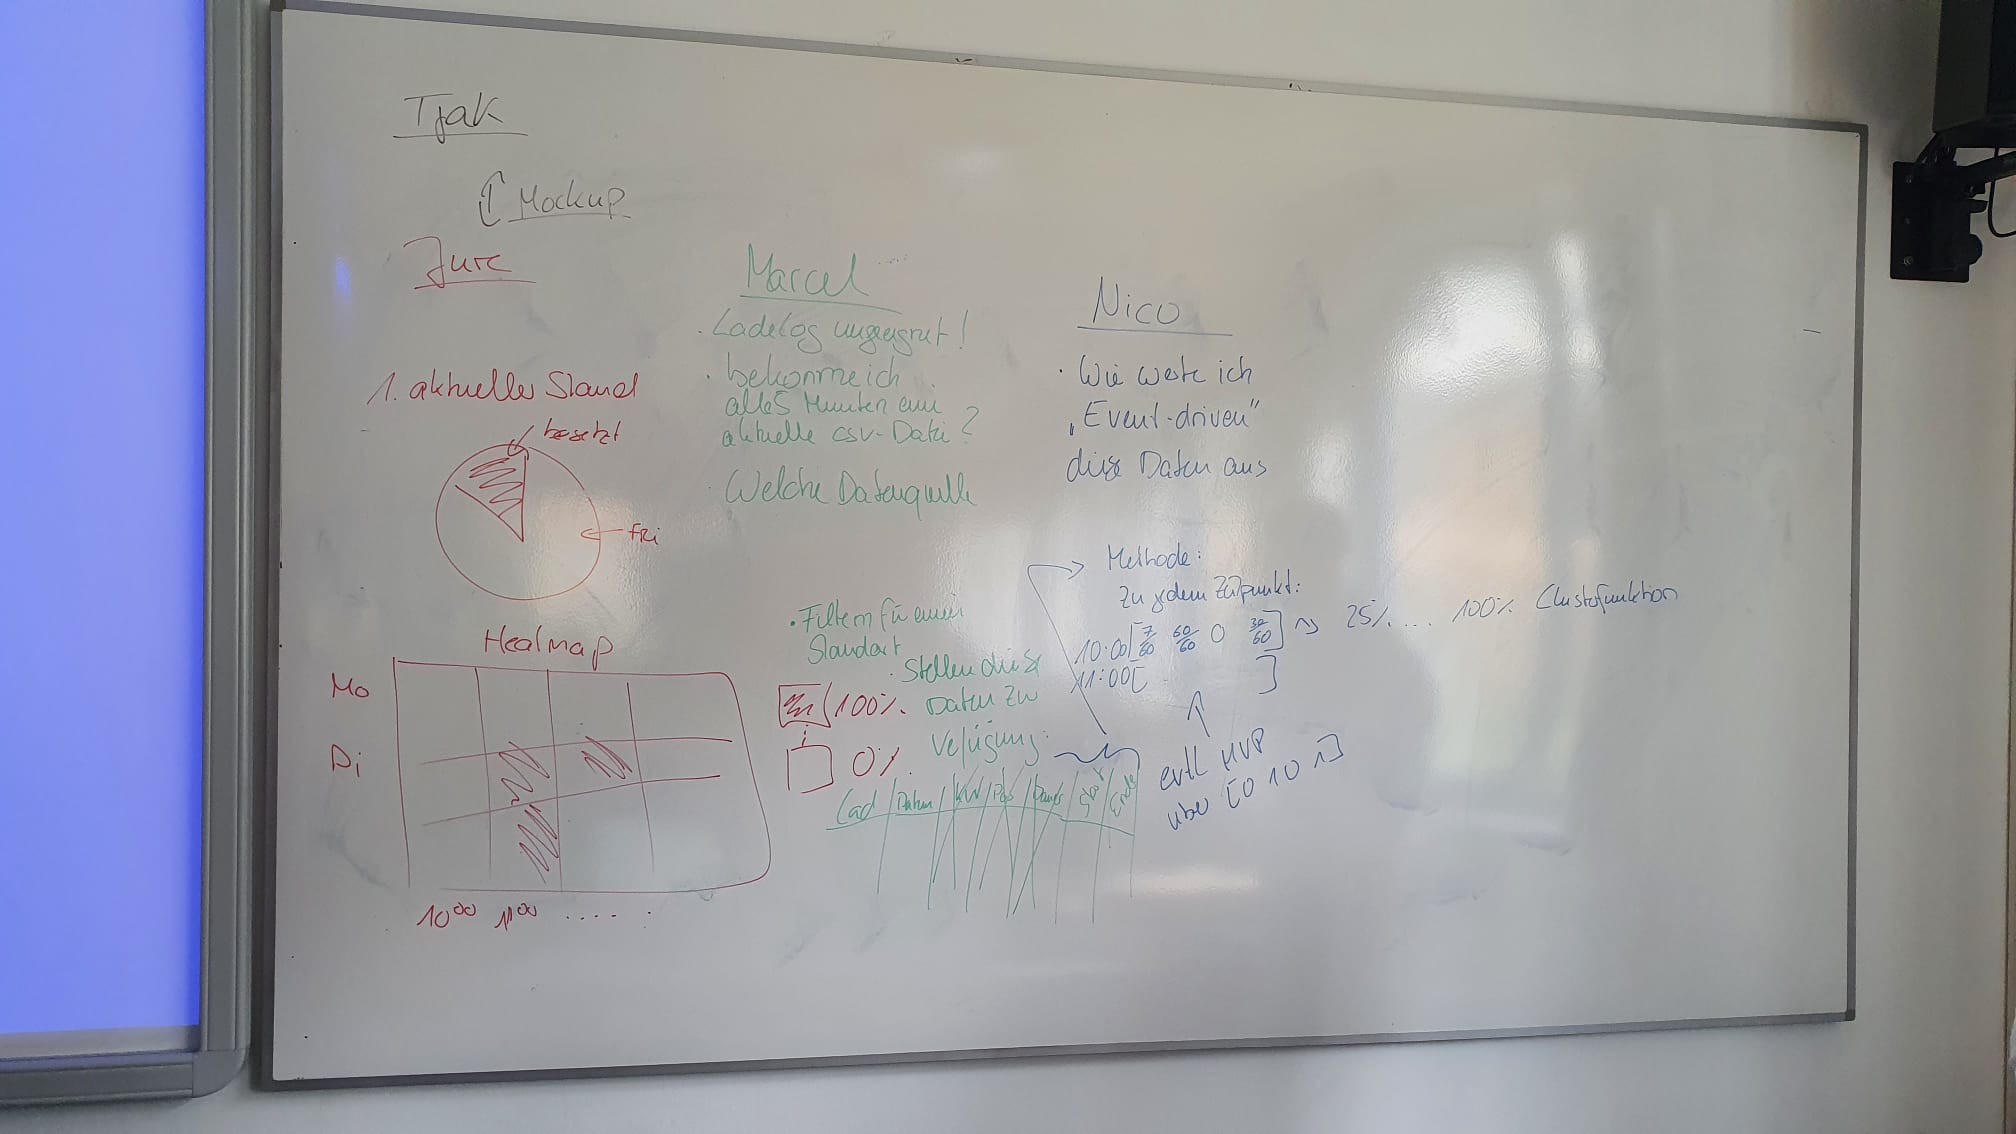 Tjak
Mockup
Jure
1. aktueller Stand
besetzt
frei
Heatmap
Mo
Di
10⁰⁰ 11⁰⁰ .....
100%
0%
Marcel
· Ladelog ungeeignet!
· bekomme ich
alle 5 Minuten eine
aktuelle csv-Datei?
· Welche Datenquelle
· Filtern für einen
Standort
· Stellen diese
Daten zur
Verfügung:
Lad | Datum | KW | | | Start | Ende
Nico
· Wie werte ich
„Event-driven"
diese Daten aus
Methode:
Zu jedem Zeitpunkt:
10:00 [7/60 60/60 0 30/60] ~> 25% .... 100% Clusterfunktion
11:00 [ ]
evtl MVP
über [0 1 0 1]